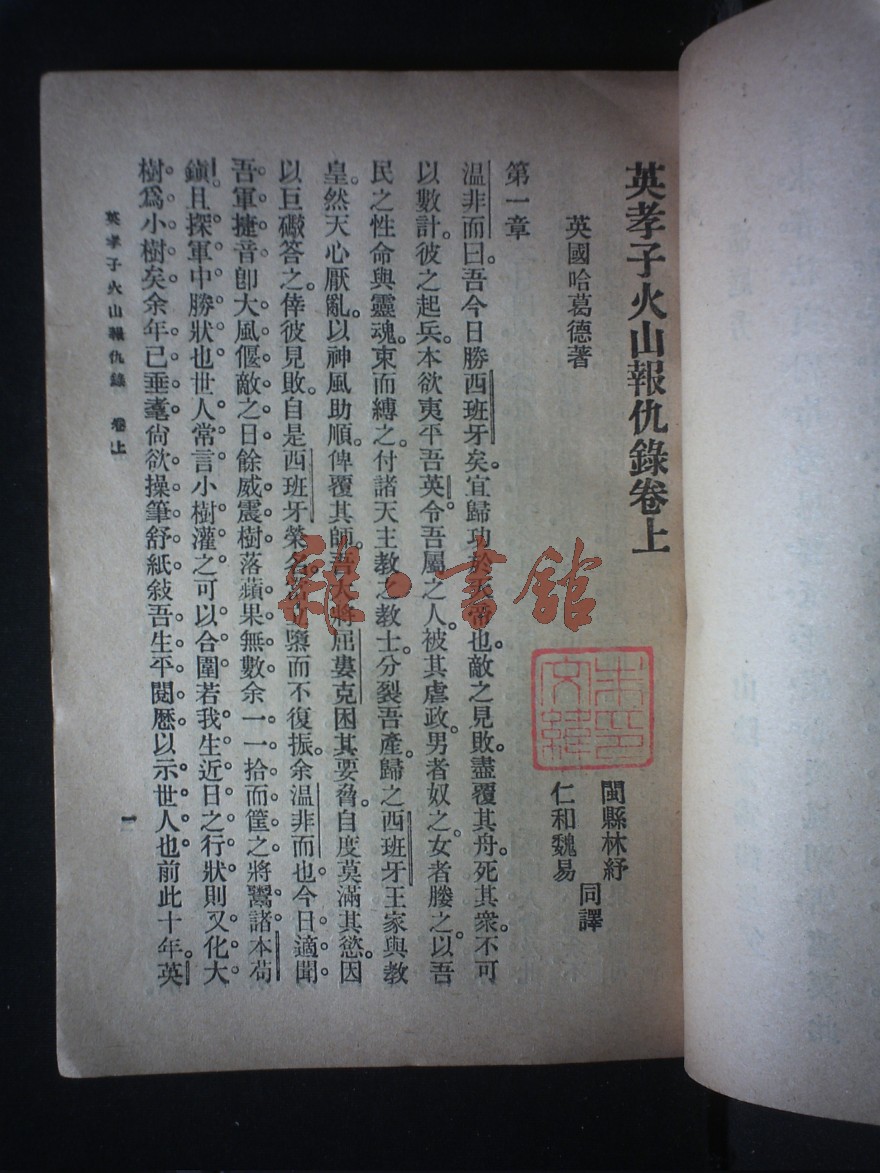 英孝子火山報仇錄卷上
英國哈葛德著
閩縣林紓
仁和魏易
同譯
第一章
温非而曰。吾今日勝西班牙矣。宜歸功於天帝也。敵之見敗。盡覆其舟。死其衆。不可
以數計。彼之起兵。本欲夷平吾英。令吾屬之人。被其虐政。男者奴之。女者媵之。以吾
民之性命與靈魂。束而縛之。付諸天主教之教士。分裂吾產。歸之西班牙王家與教
皇。然天心厭亂。以神風助順。俾覆其師。吾大將屈婁克困其要脅。自度莫滿其慾。因
以巨礮答之。倖彼見敗。自是西班牙榮名。立隳而不復振。余温非而也。今日適聞
吾軍捷音。卽大風偃敵之日。餘威震樹。落蘋果無數。余一一拾而筐之。將鬻諸本苟
鎭。且探軍中勝狀也。世人常言小樹灌之可以合圍。若我生近日之行狀。則又化大
樹爲小樹矣。余年已垂耄。尙欲操筆舒紙。敍吾生平閱歷。以示世人也。前此十年。英
英孝子火山報仇錄 卷上
一
朱
文
雜·書館